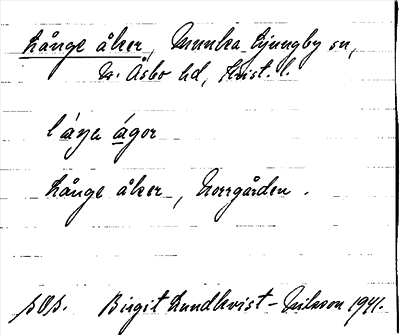 Långe åker, Munka Ljungby sn,
N. Åsbo hd, Krist. l.
låŋa ågor
Långe åker, Norrgården.
pOp. Birgit Lundkvist-Nilsson 1941.